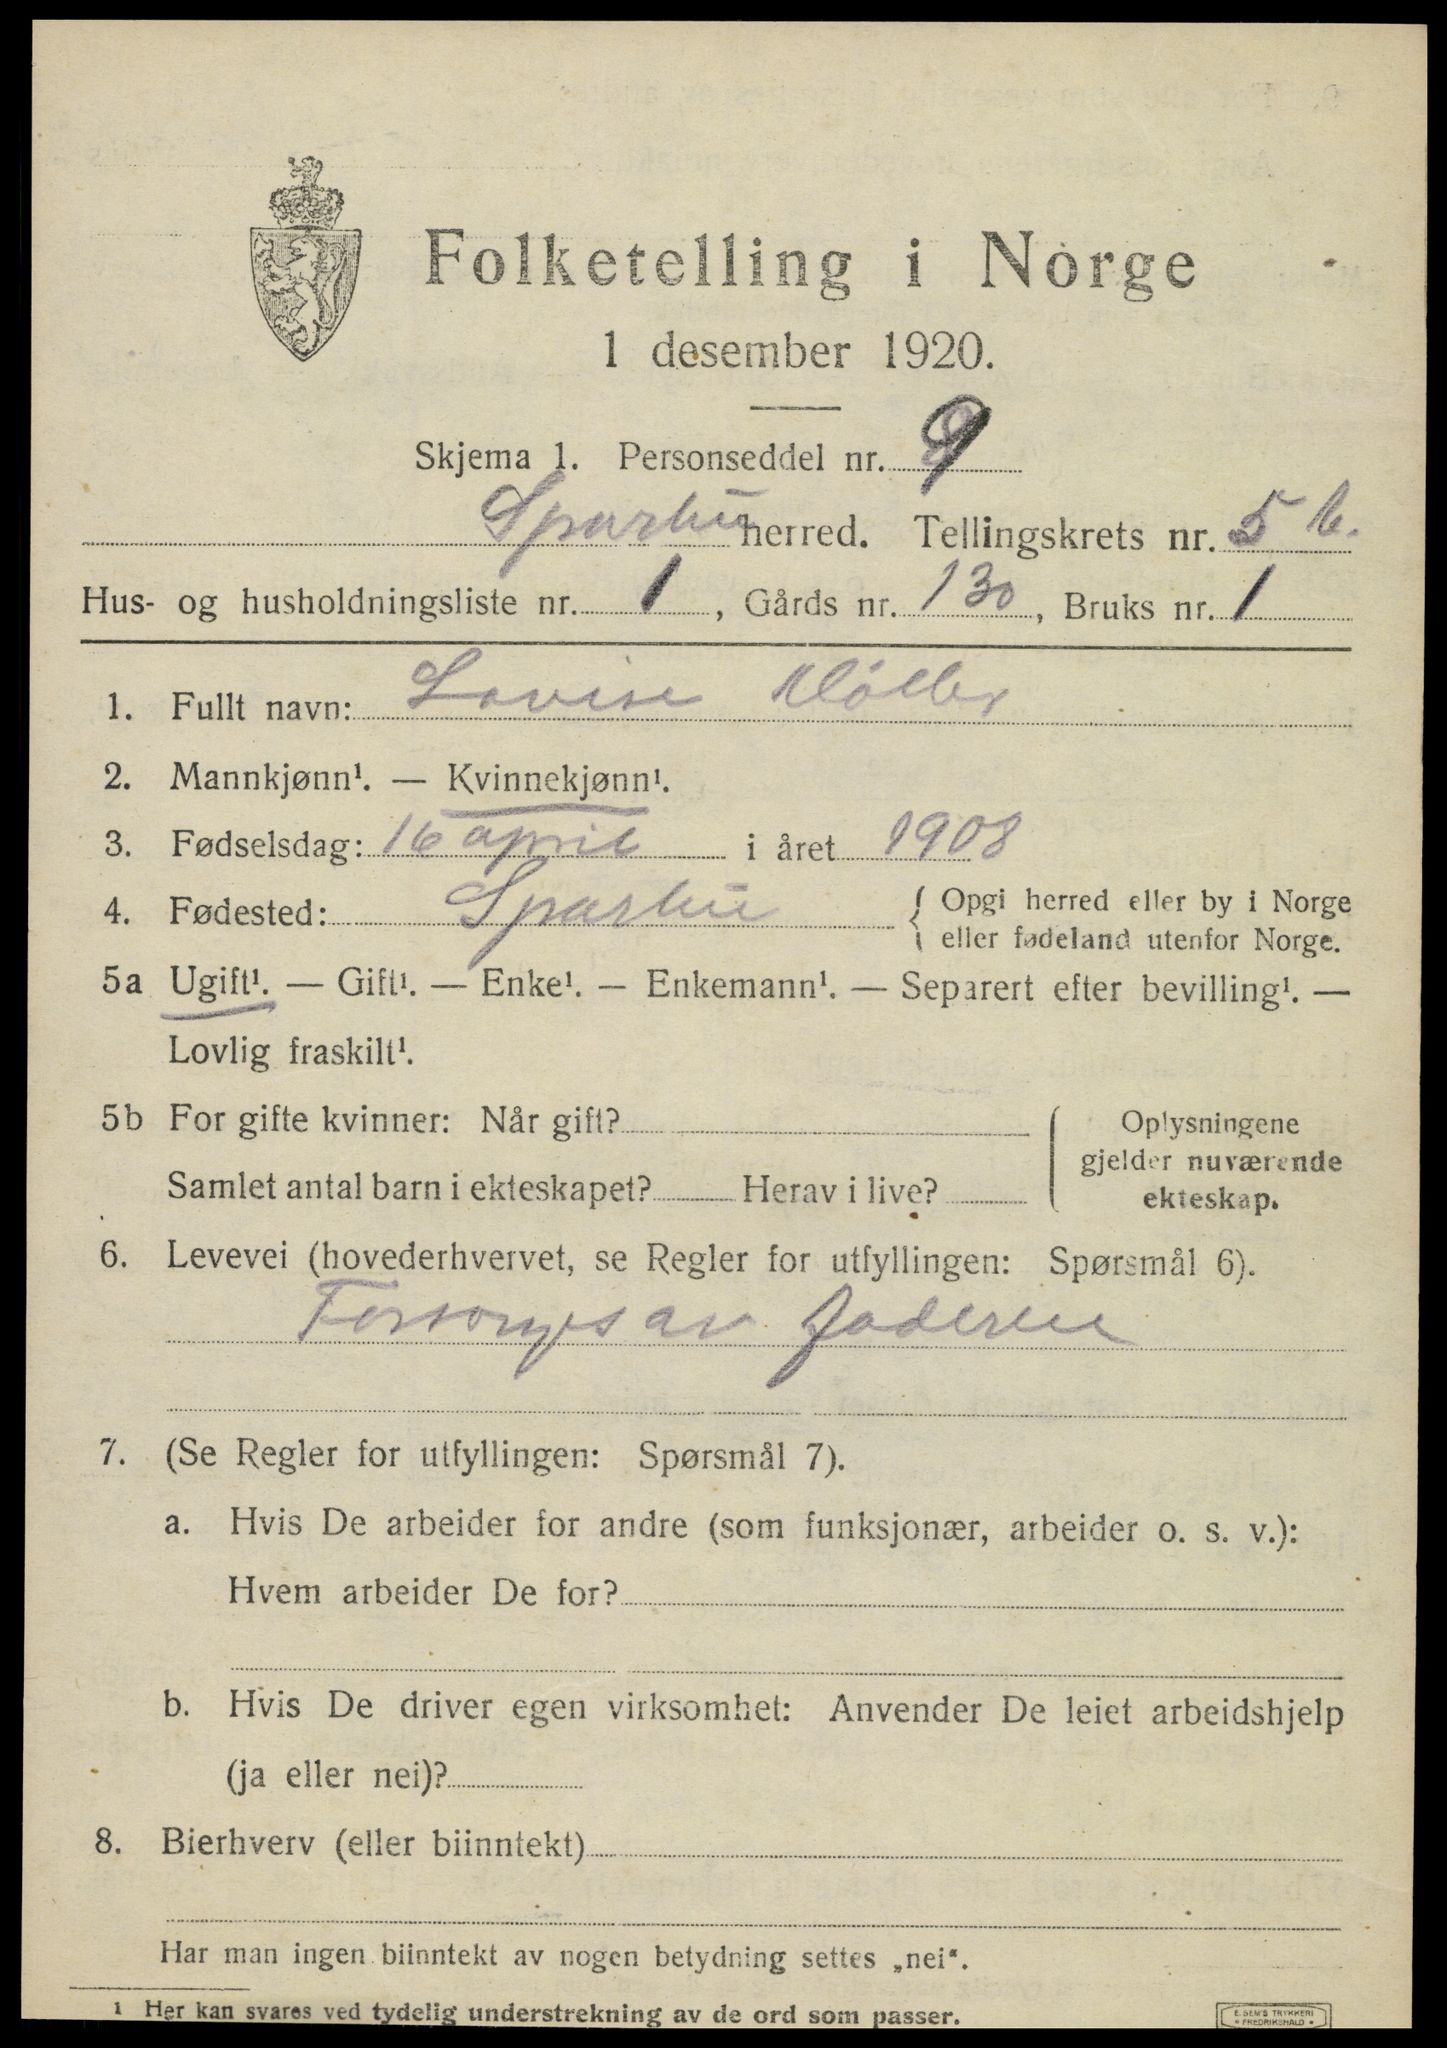 Folketelling i Norge
1 desember 1920.
Skjema 1. Personseddel nr. 9
Sparbu herred. Tellingskrets nr. 5 b.
Hus- og husholdningsliste nr. 1, Gårds nr. 130, Bruks nr. 1
1. Fullt navn: Lovise Møller
2. Mannkjønn¹. — Kvinnekjønn¹.
3. Fødselsdag: 16 april i året 1908
4. Fødested: Sparbu { Opgi herred eller by i Norge
eller fødeland utenfor Norge.
5a Ugift¹. — Gift¹. — Enke¹. — Enkemann¹. — Separert efter bevilling¹. —
Lovlig fraskilt¹.
5b For gifte kvinner: Når gift?
Samlet antal barn i ekteskapet? Herav i live?
Oplysningene
gjelder nuværende
ekteskap.
6. Levevei (hovederhvervet, se Regler for utfyllingen: Spørsmål 6).
Forsørges av faderen
7. (Se Regler for utfyllingen: Spørsmål 7).
a. Hvis De arbeider for andre (som funksjonær, arbeider o. s. v.):
Hvem arbeider De for?
b. Hvis De driver egen virksomhet: Anvender De leiet arbeidshjelp
(ja eller nei)?
8. Bierhverv (eller biinntekt)
Har man ingen biinntekt av nogen betydning settes „nei“.
¹ Her kan svares ved tydelig understrekning av de ord som passer.
E. SEM'S TRYKKERI
• FREDRIKSHALD •